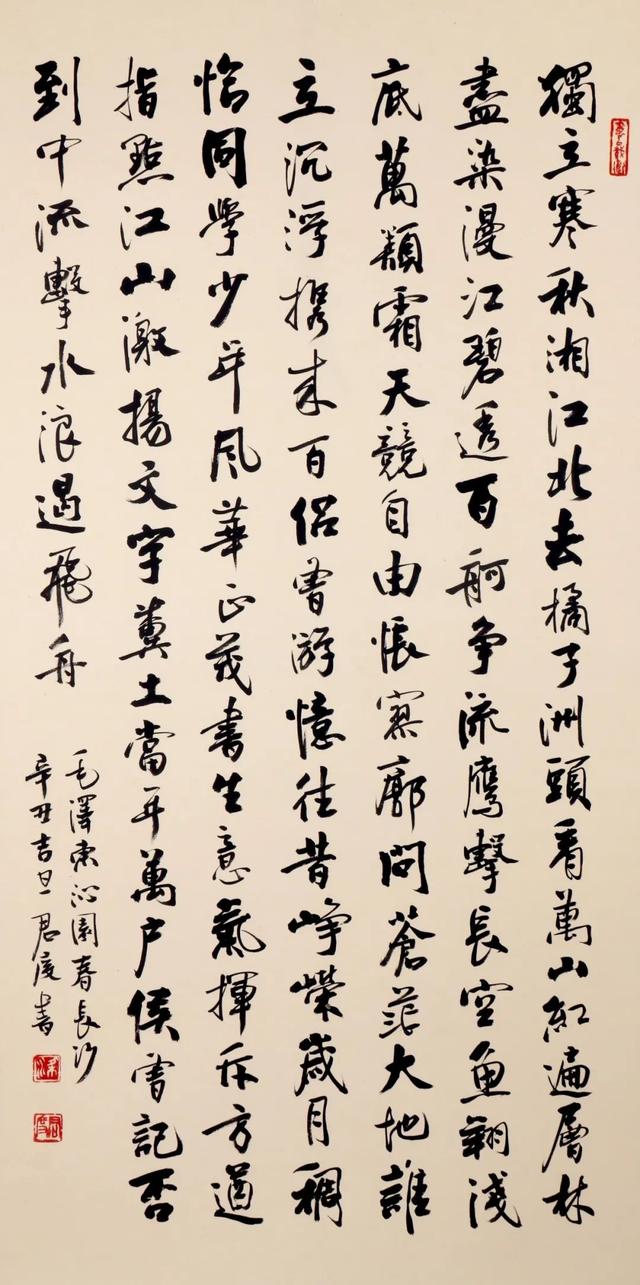 獨立寒秋湘江北去橘子洲頭看萬山紅遍層林
盡染漫江碧透百舸争流鷹擊長空魚翔淺
底萬類霜天競自由悵寥廓問蒼茫大地誰
主沉浮携来百侣曾游憶往昔峥嶸歲月稠
恰同學少年風華正茂書生意氣揮斥方遒
指點江山激揚文字糞土當年萬户侯曾記否
到中流擊水浪遏飛舟
毛澤東沁園春長沙
辛丑吉旦君度書
君度